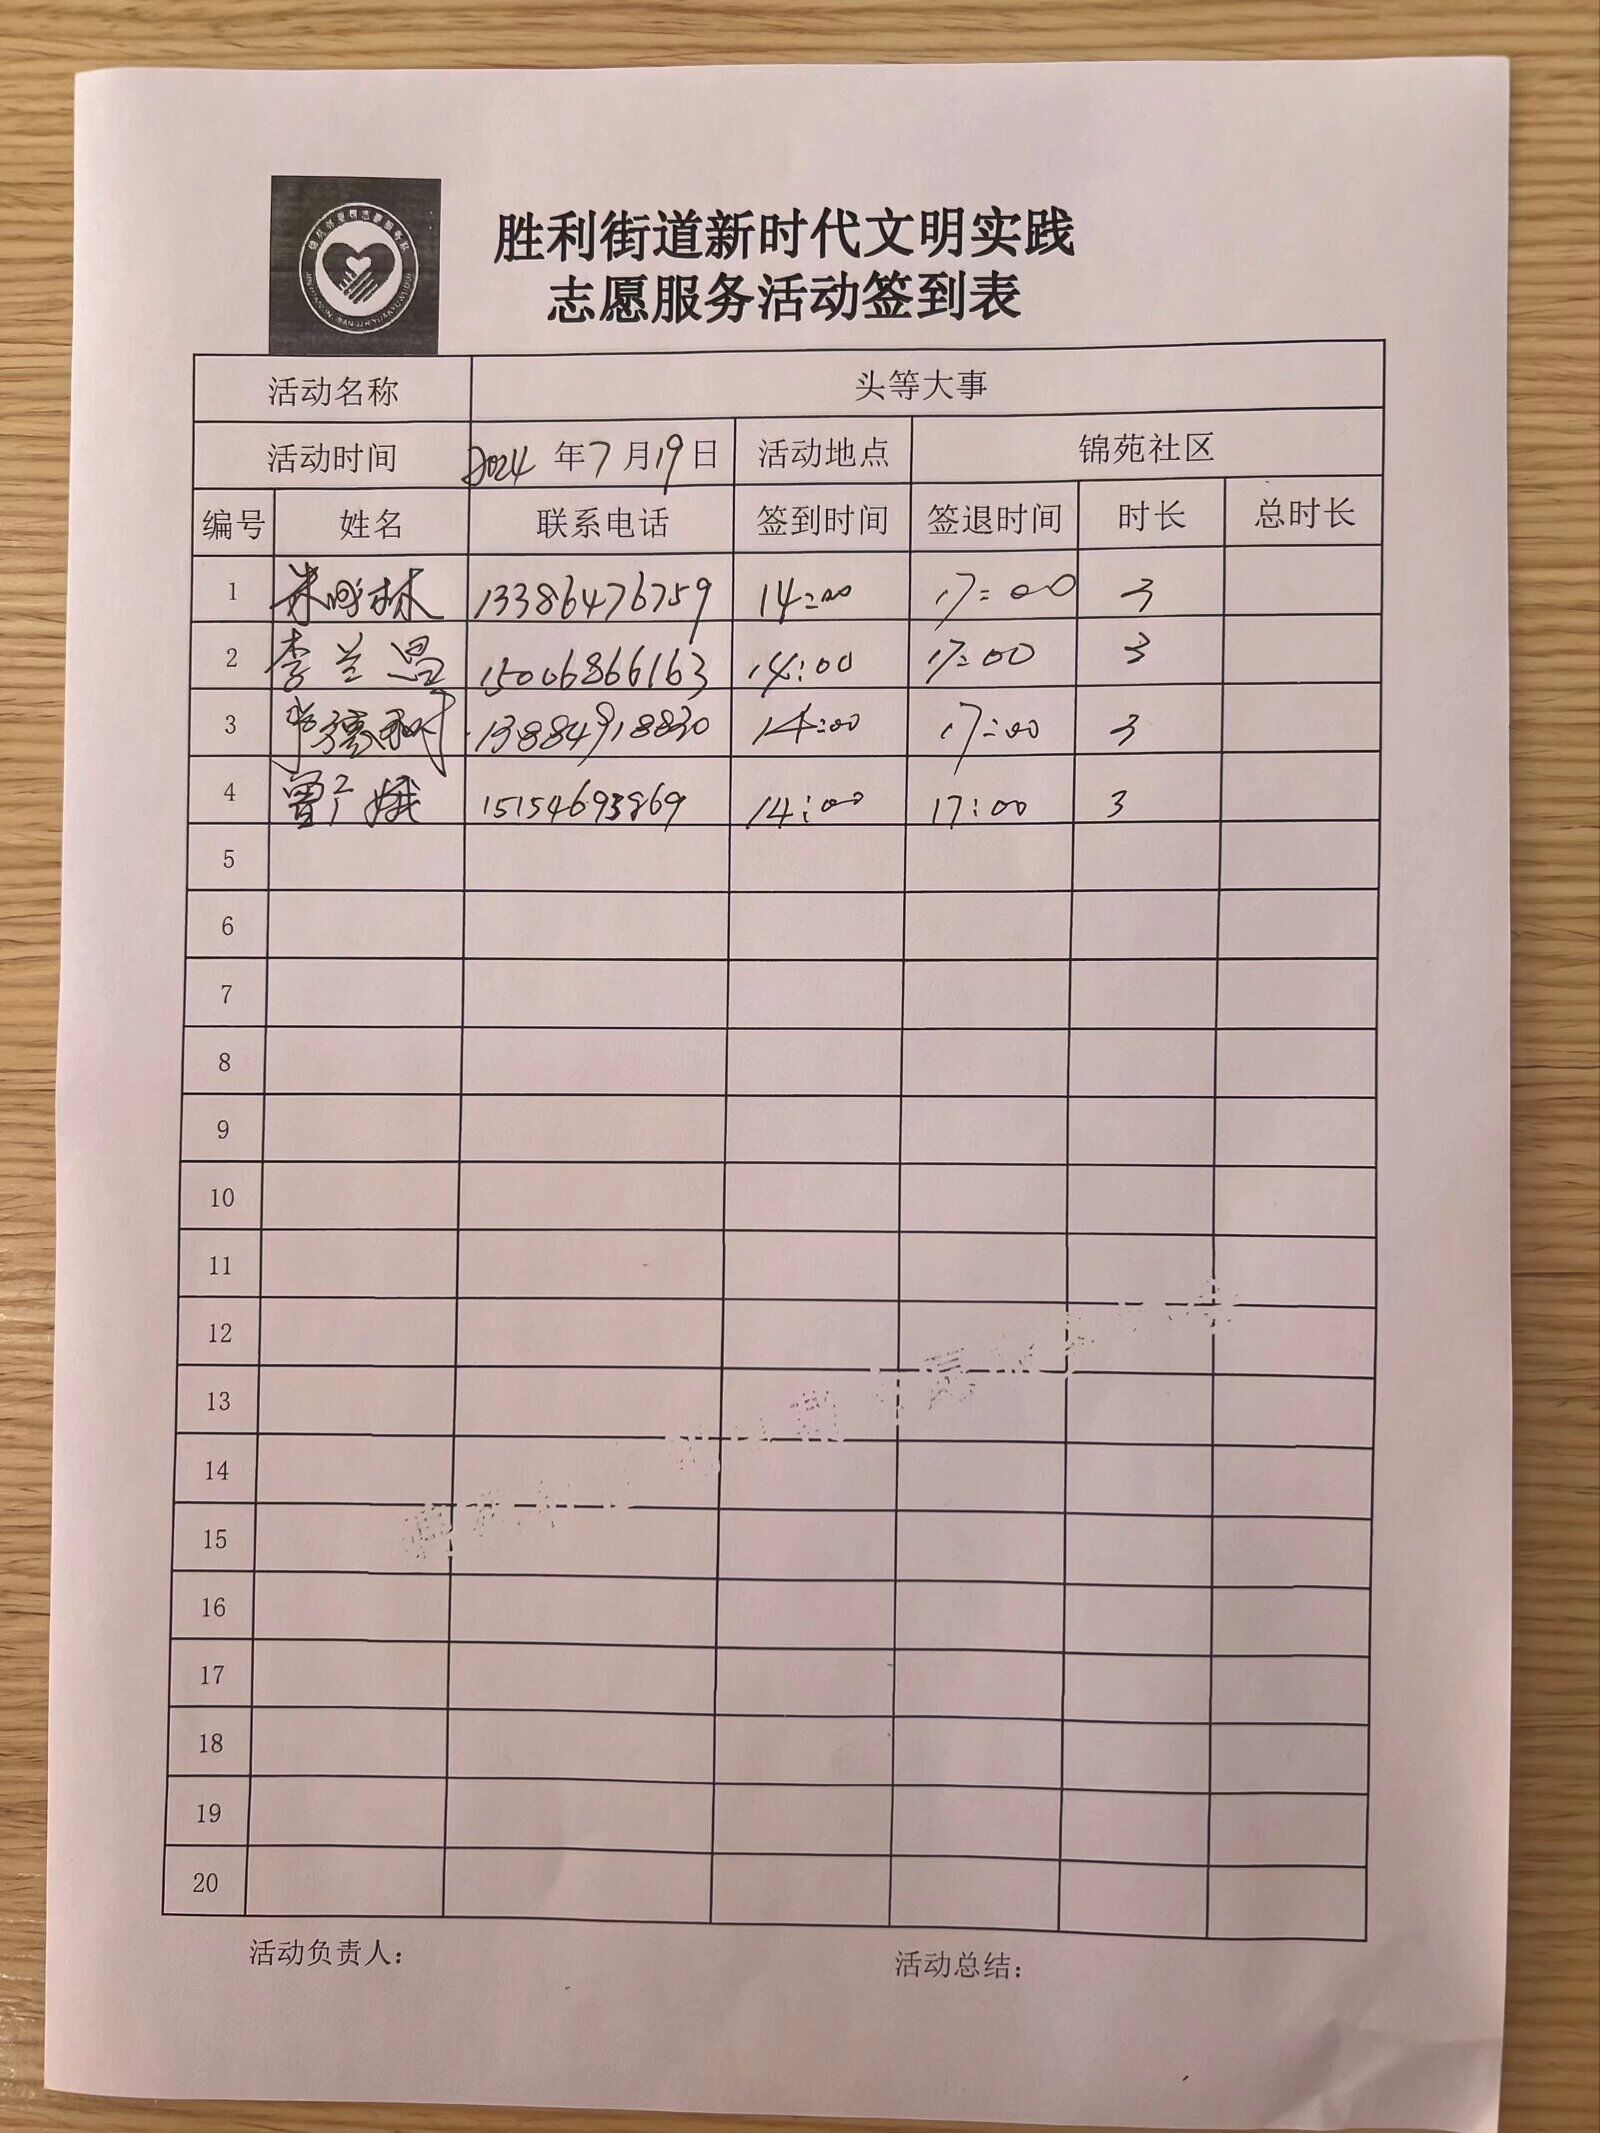 胜利街道新时代文明实践
志愿服务活动签到表
活动名称 头等大事
活动时间 2024年7月19日 活动地点 锦苑社区
编号 姓名 联系电话 签到时间 签退时间 时长 总时长
1 13386476759 14:00 17:00 3
2 李兰昌 15006866163 14:00 17:00 3
3 13884918830 14:00 17:00 3
4 曾广娥 15154693869 14:00 17:00 3
5
6
7
8
9
10
11
12
13
14
15
16
17
18
19
20
活动负责人: 活动总结: